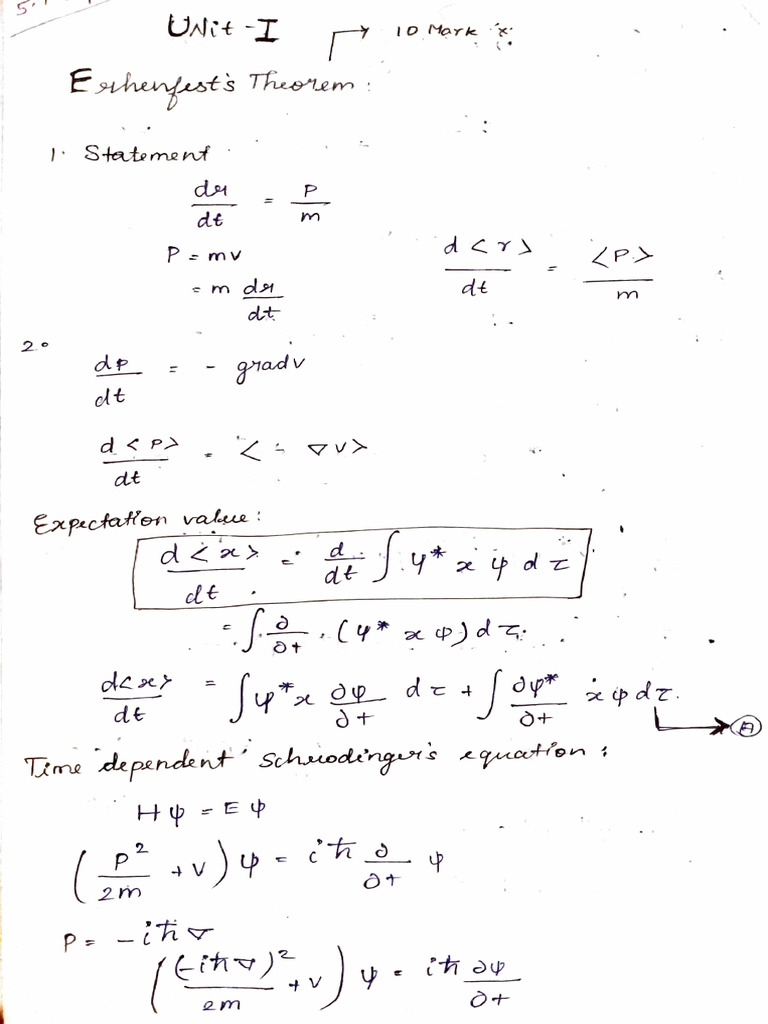 UNit - I
→ 10 Mark
Erhenfest's Theorem :
1. Statement
dr/dt = P/m
P = mv
= m dr/dt
d<r>/dt = <P>/m
2.
dp/dt = - grad v
d<P>/dt = <- ∇V>
Expectation value :
d<x>/dt = d/dt ∫ ψ* x ψ dτ
= ∫ ∂/∂t (ψ* x ψ) dτ.
d<x>/dt = ∫ψ* x ∂ψ/∂t dτ + ∫ ∂ψ*/∂t x ψ dτ. → Ⓐ
Time dependent Schrodinger's equation :
Hψ = Eψ
(P²/2m + V) ψ = iħ ∂/∂t ψ
P = -iħ∇
((-iħ∇)²/2m + V) ψ = iħ ∂ψ/∂t